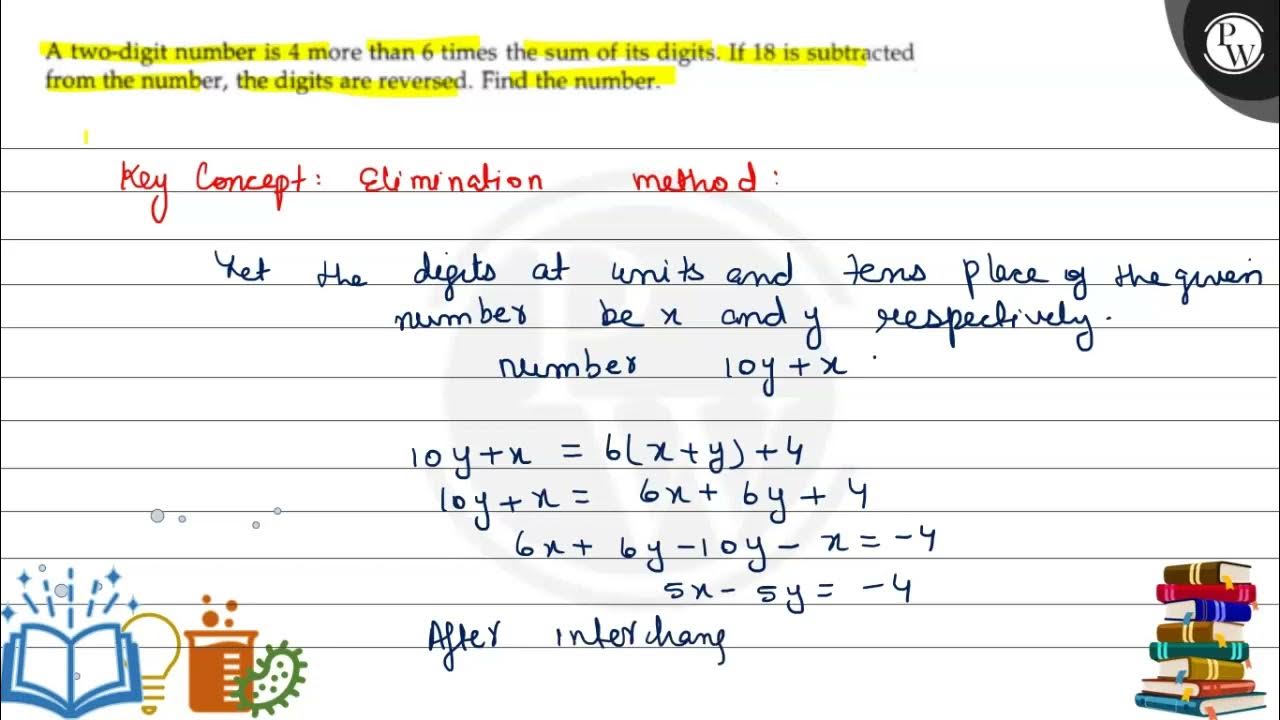 A two-digit number is 4 more than 6 times the sum of its digits. If 18 is subtracted
from the number, the digits are reversed. Find the number.
PW
Key Concept: Elimination method:
Let the digits at units and tens place of the given
number be x and y respectively.
number 10y + x
10y + x = 6(x + y) + 4
10y + x = 6x + 6y + 4
6x + 6y - 10y - x = -4
5x - 5y = -4
After interchang